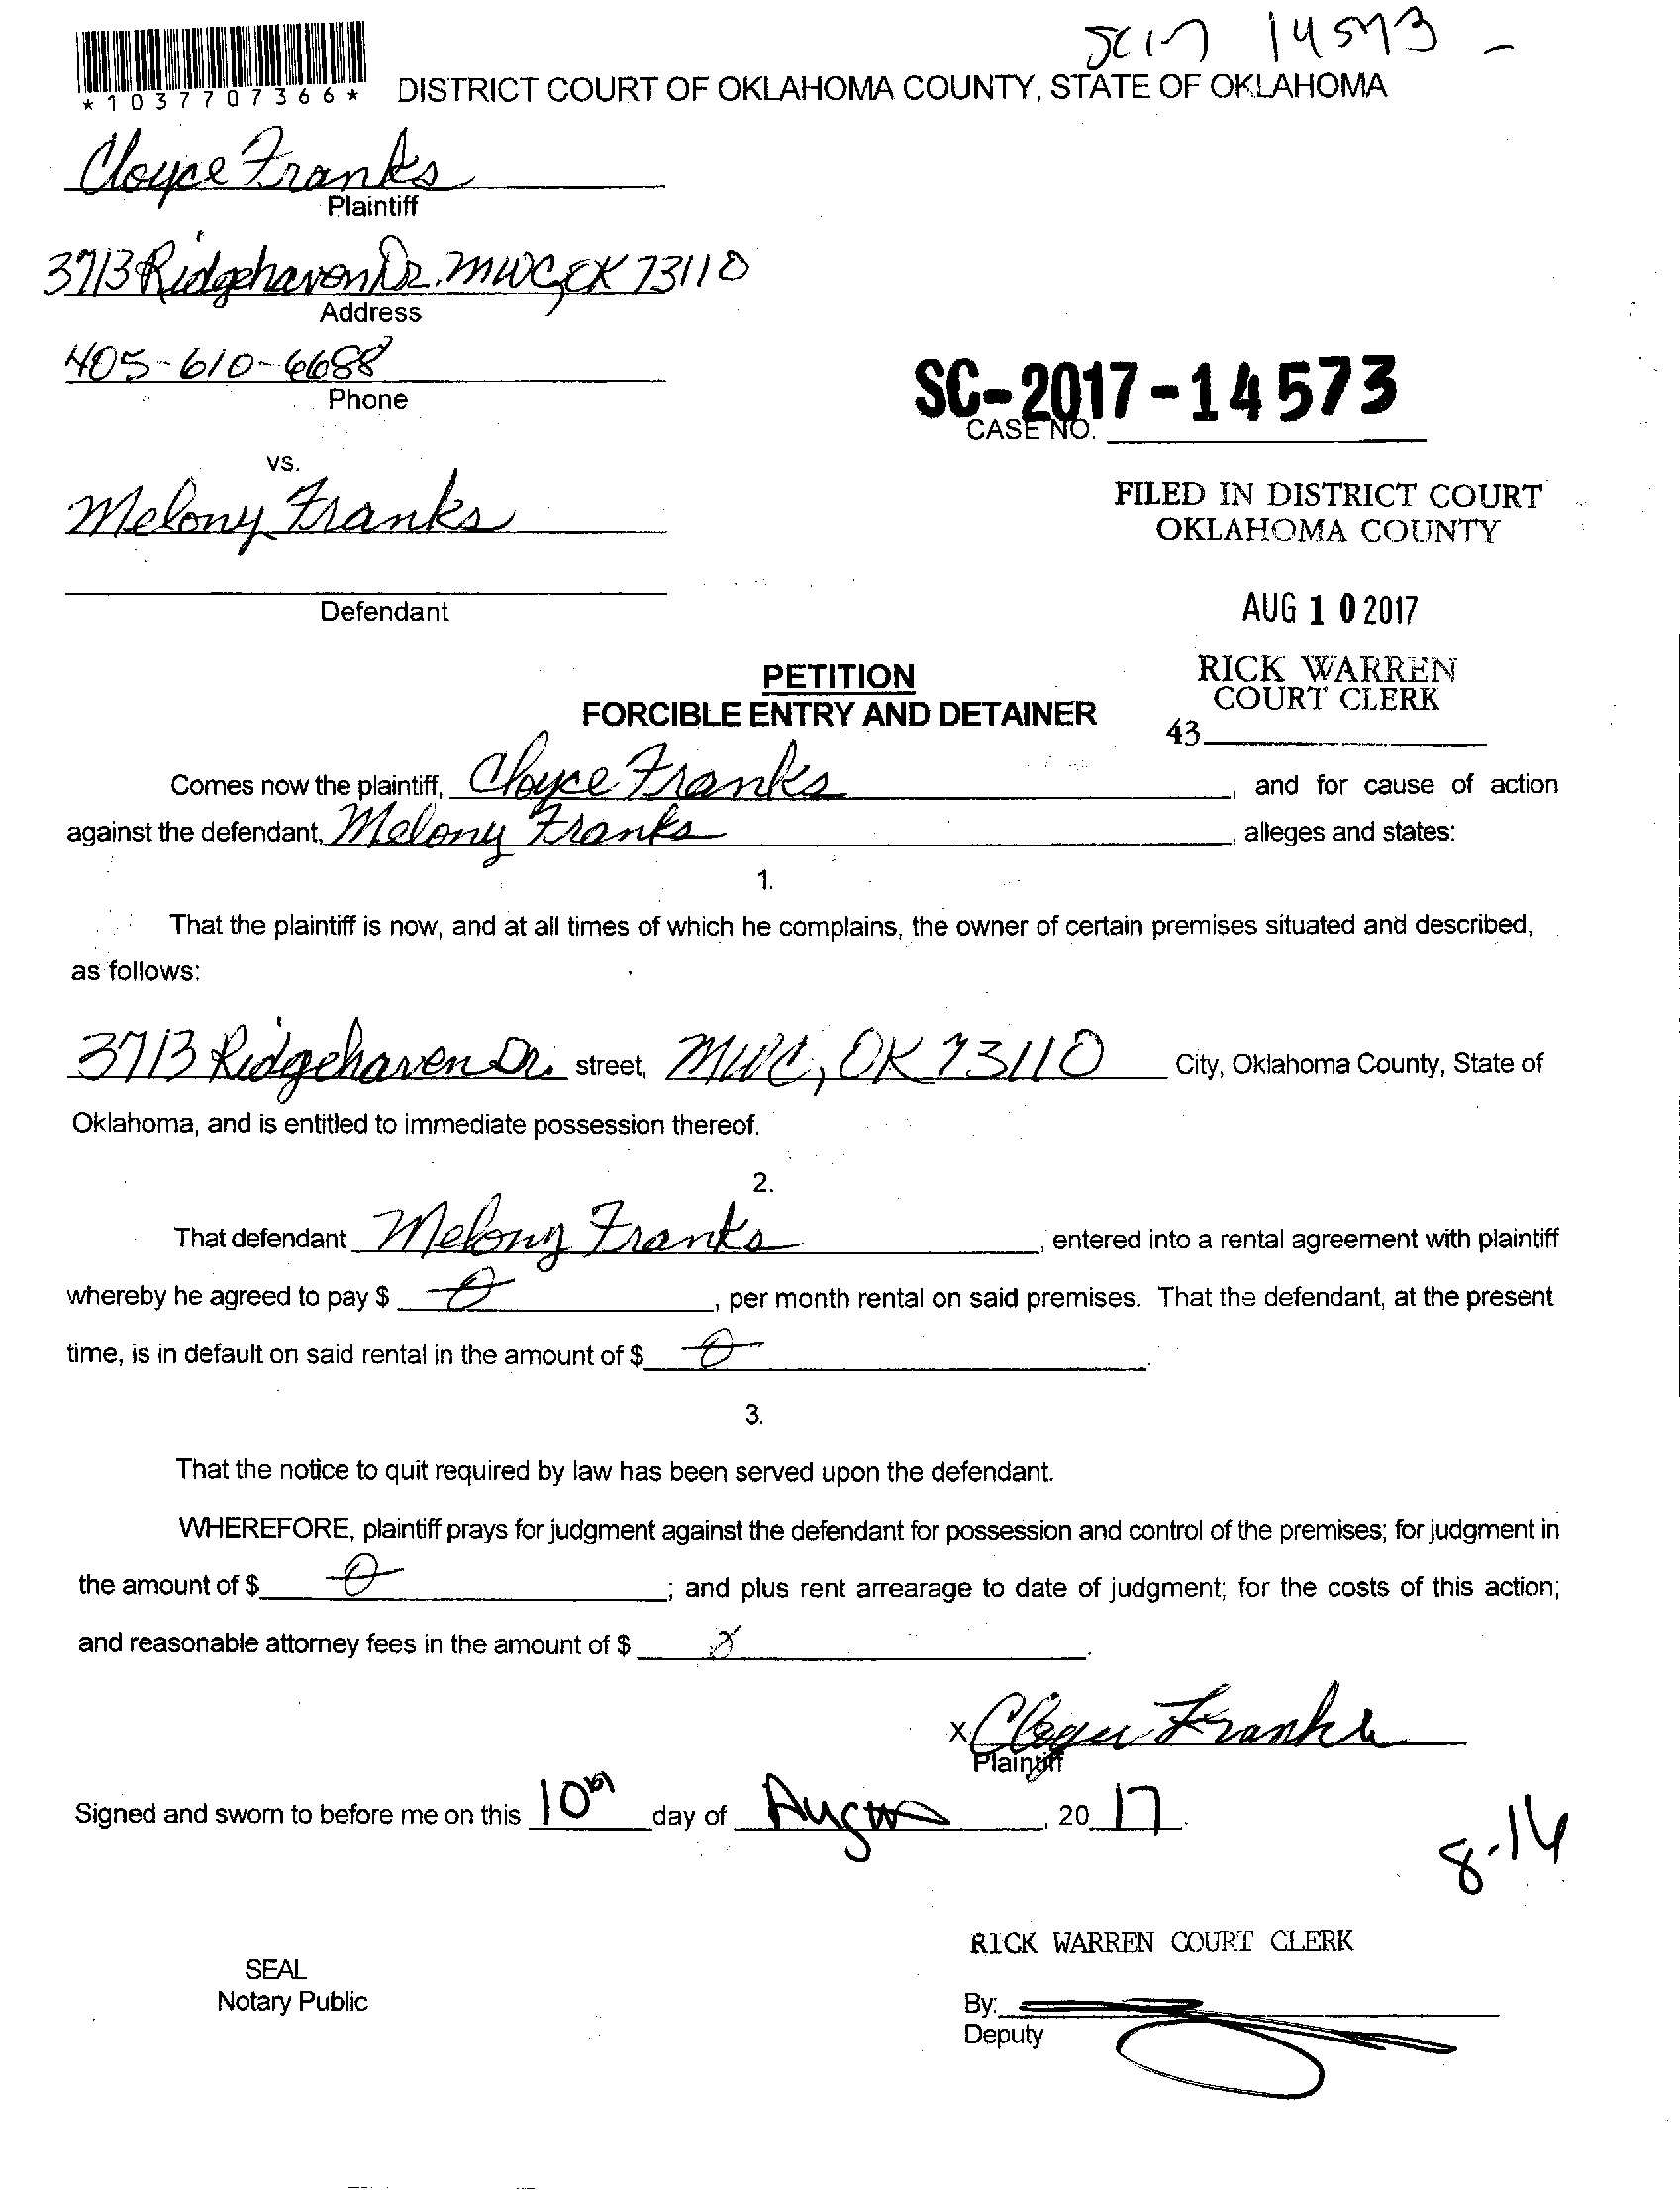 SC17 14573 -
*1037707366*
DISTRICT COURT OF OKLAHOMA COUNTY, STATE OF OKLAHOMA
Cloyce Franks
Plaintiff
3713 Ridgehaven Dr. MWC, OK 73110
Address
405-610-6688
Phone
SC-2017-14573
CASE NO.
vs.
Melony Franks
Defendant
FILED IN DISTRICT COURT
OKLAHOMA COUNTY
AUG 10 2017
RICK WARREN
COURT CLERK
43
PETITION
FORCIBLE ENTRY AND DETAINER
Comes now the plaintiff, Cloyce Franks, and for cause of action
against the defendant, Melony Franks, alleges and states:
1.
That the plaintiff is now, and at all times of which he complains, the owner of certain premises situated and described,
as follows:
3713 Ridgehaven Dr. street, MWC, OK 73110 City, Oklahoma County, State of
Oklahoma, and is entitled to immediate possession thereof.
2.
That defendant Melony Franks, entered into a rental agreement with plaintiff
whereby he agreed to pay $ 0, per month rental on said premises. That the defendant, at the present
time, is in default on said rental in the amount of $ 0.
3.
That the notice to quit required by law has been served upon the defendant.
WHEREFORE, plaintiff prays for judgment against the defendant for possession and control of the premises; for judgment in
the amount of $ 0; and plus rent arrearage to date of judgment; for the costs of this action;
and reasonable attorney fees in the amount of $.
x Cloyce Franks
Plaintiff
Signed and sworn to before me on this 10th day of August, 20 17.
8-14
RICK WARREN COURT CLERK
SEAL
Notary Public
By:
Deputy